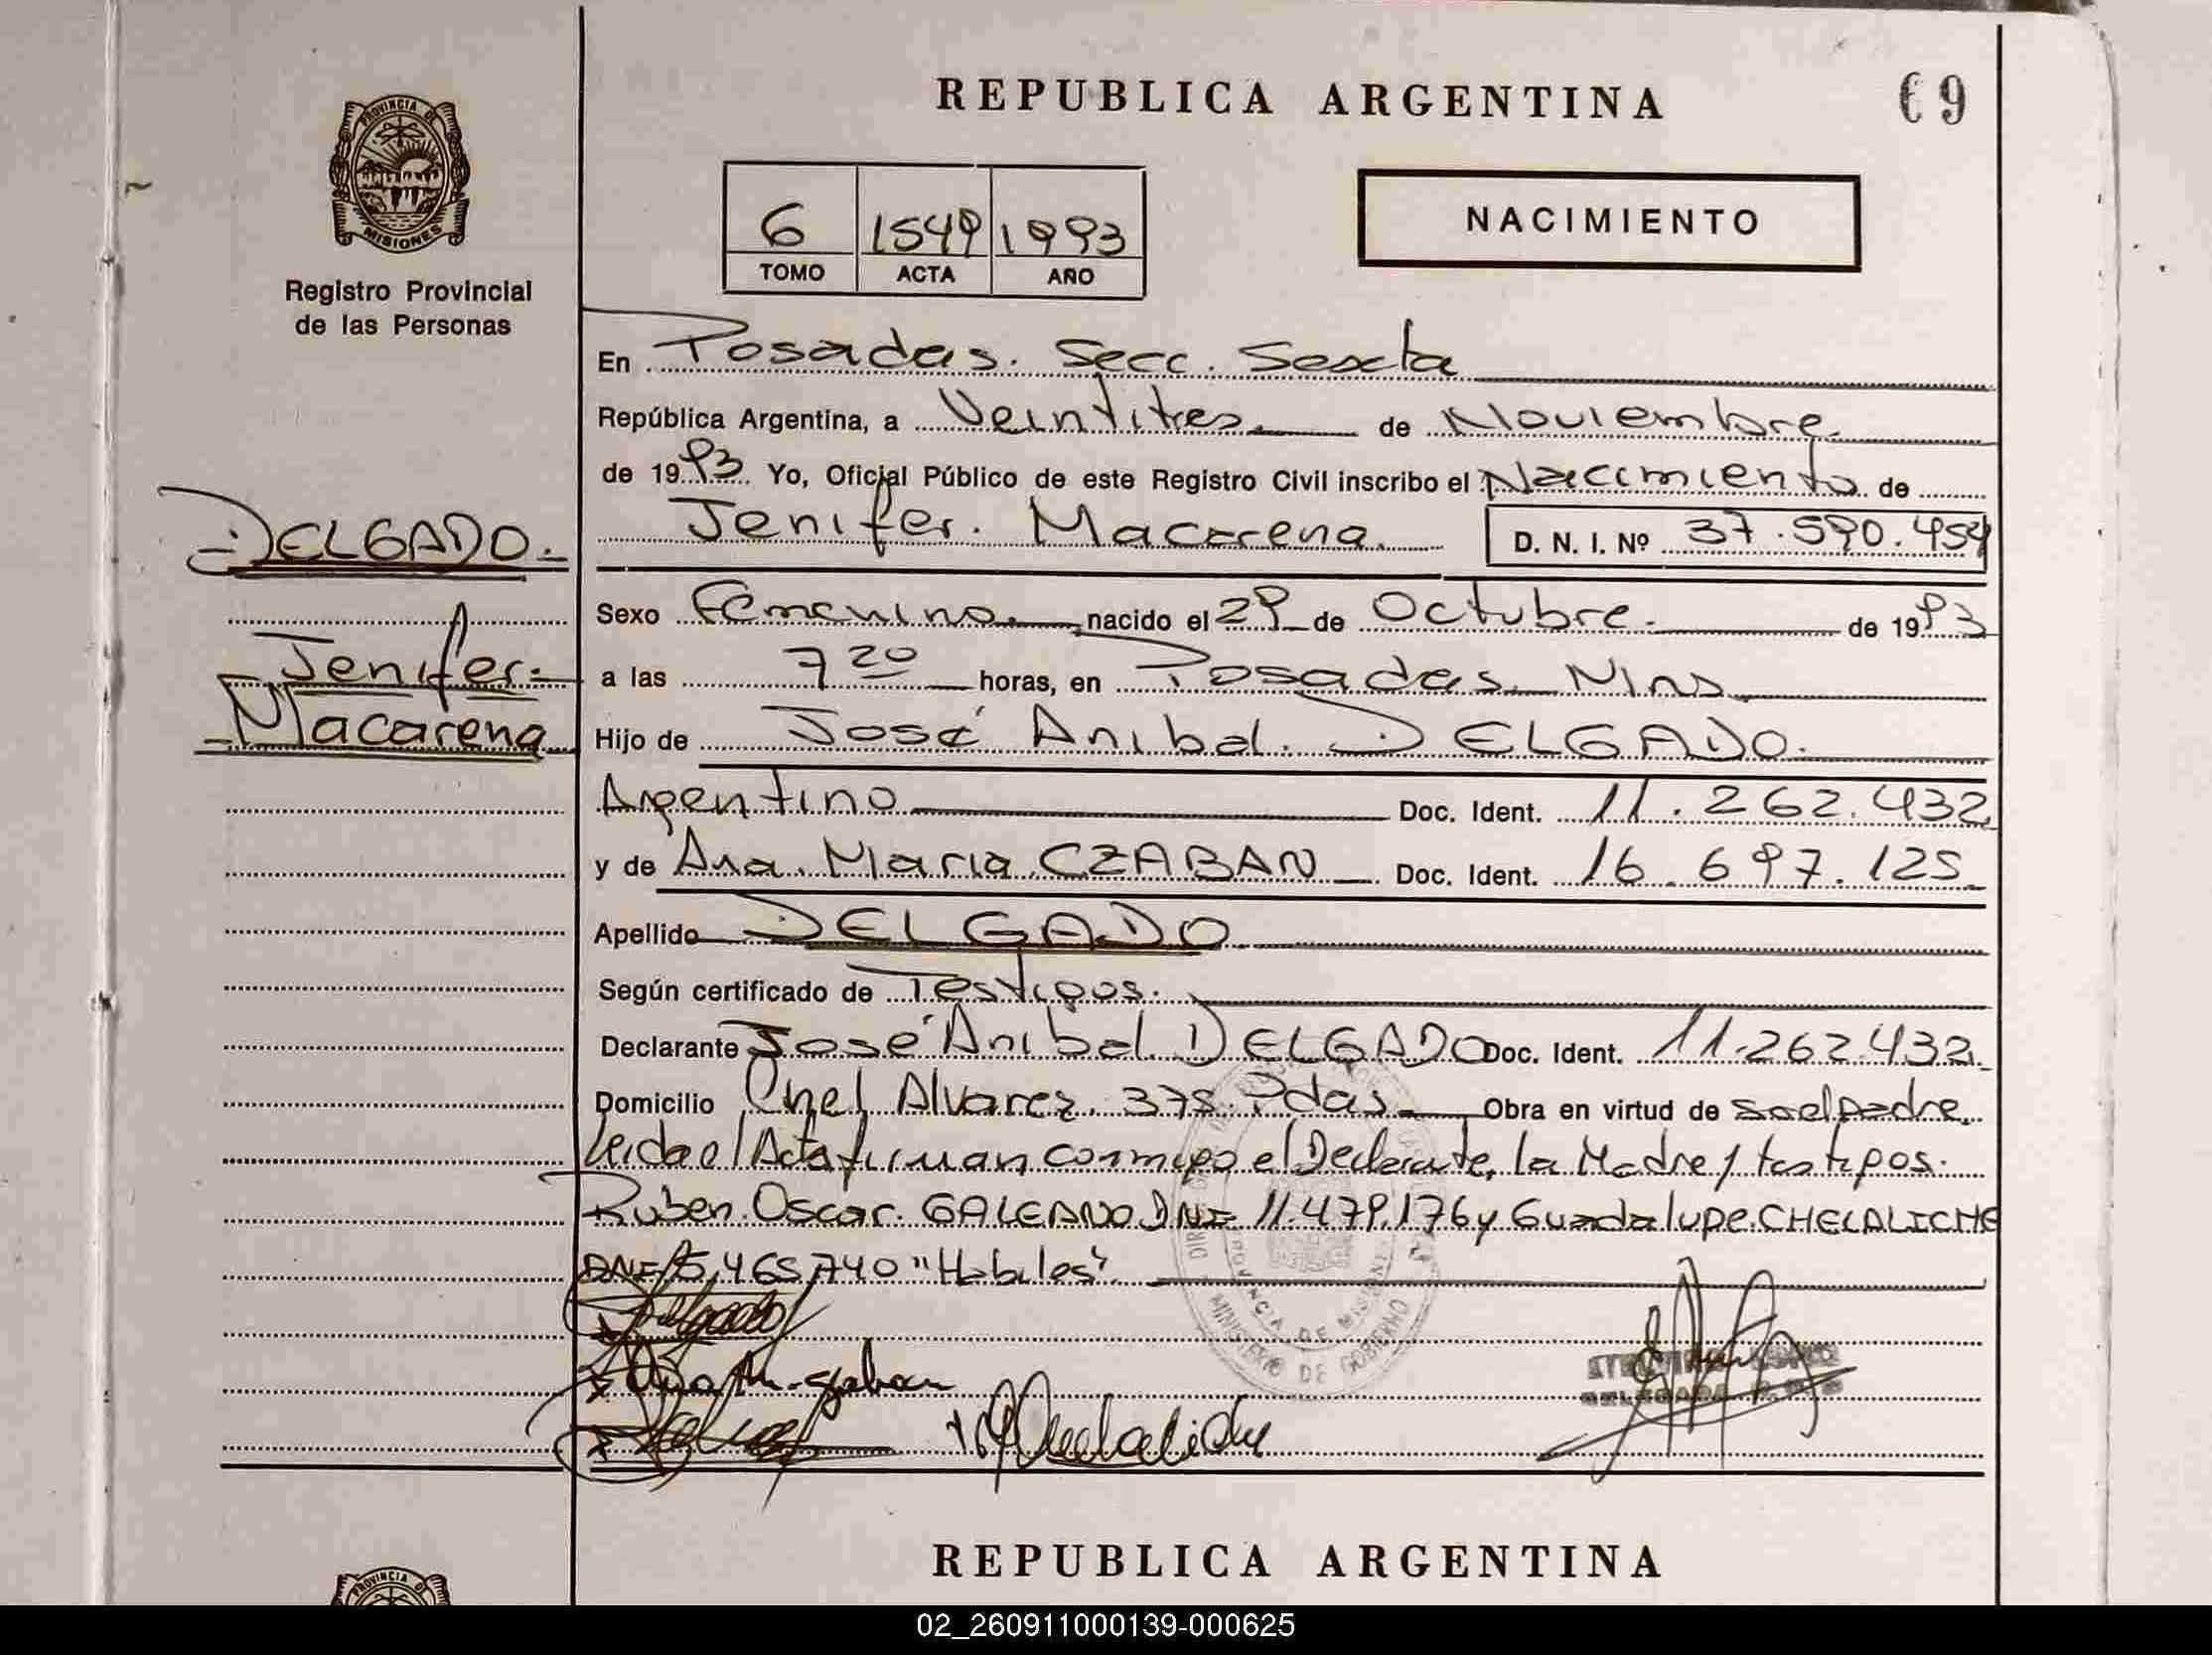 REPUBLICA ARGENTINA
69
PROVINCIA DE
MISIONES
Registro Provincial
de las Personas
6 1549 1993
TOMO ACTA AÑO
NACIMIENTO
En Posadas. Secc. Sexta
República Argentina, a Veintitres de Noviembre
de 1993 Yo, Oficial Público de este Registro Civil inscribo el Nacimiento de
Jenifer. Macarena. D. N. I. Nº 37.590.454
DELGADO.
Jenifer
Macarena
Sexo Femenino. nacido el 29 de Octubre. de 1993
a las 7 20 horas, en Posadas. Mns
Hijo de José Anibal. DELGADO.
Argentino Doc. Ident. 11.262.432
y de Ana. Maria CZABAN Doc. Ident. 16.697.125
Apellido DELGADO
Según certificado de Testigos.
Declarante José Anibal DELGADO Doc. Ident. 11.262.432
Domicilio Cnel Alvarez 375. Pdas Obra en virtud de Ser el padre
Leida el Acta firman conmigo el Declarante, la Madre y testigos.
Ruben Oscar. GALEANO DNI 11.479.176 y Guadalupe CHELALICHE
DNI 5.465.740 "Habiles".
PROVINCIA DE MISIONES
MINISTERIO DE GOBIERNO
REPUBLICA ARGENTINA
PROVINCIA DE
02_260911000139-000625